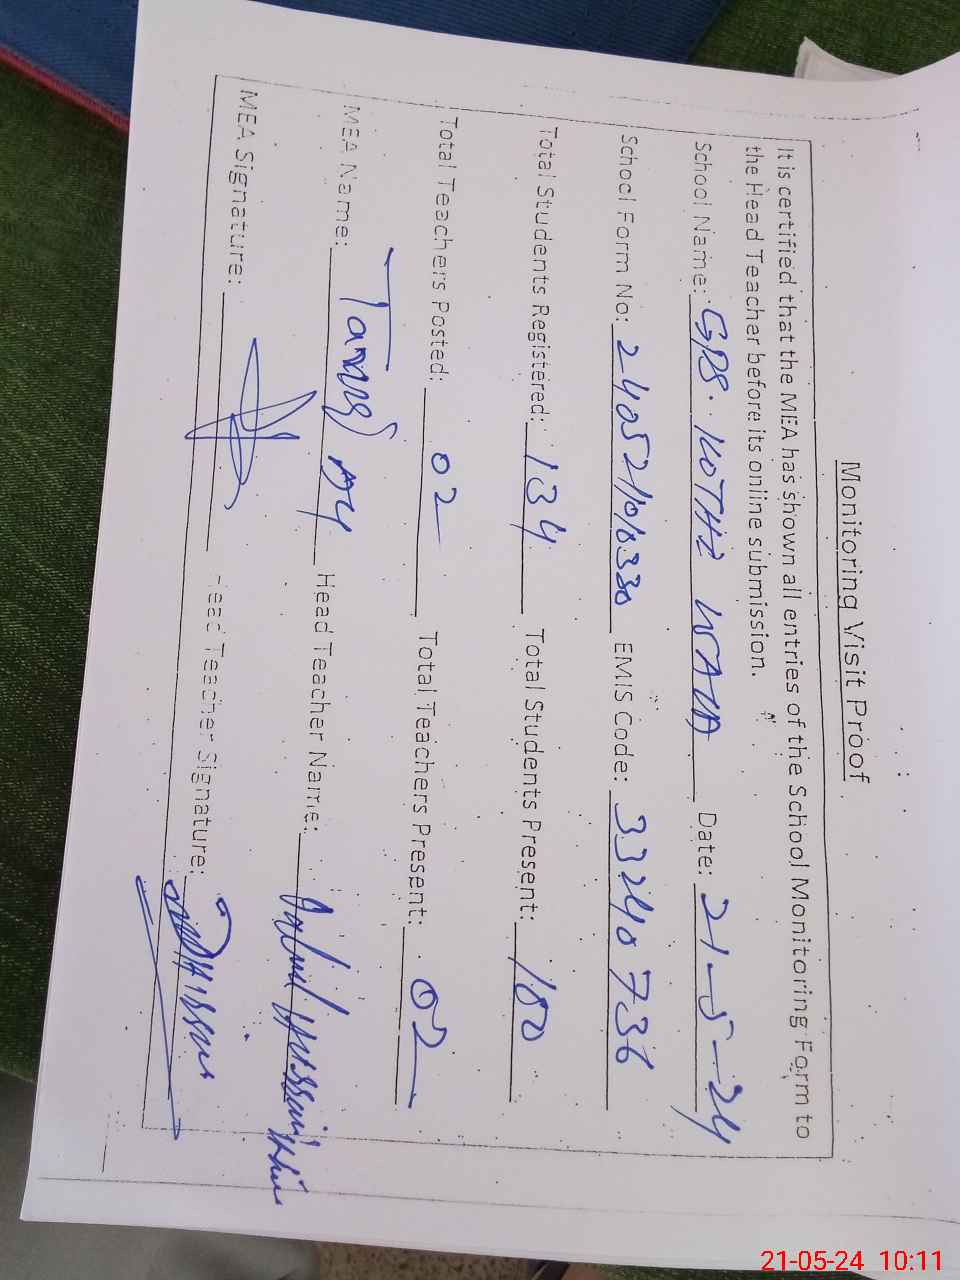 Monitoring Visit Proof
It is certified that the MEA has shown all entries of the School Monitoring Form to
the Head Teacher before its online submission.
School Name: GPS. KOTHI WALA Date: 21-5-24
School Form No: EMIS Code: 33240736
Total Students Registered: 134 Total Students Present: 100
Total Teachers Posted: 02 Total Teachers Present: 02
MEA Name: Head Teacher Name:
MEA Signature: Head Teacher Signature:
21-05-24 10:11